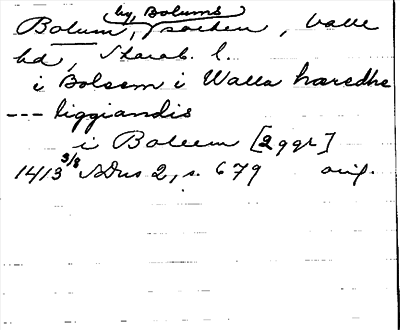 by, Bolums
Bolum, socken, Valle
hd, Skarab. l.
i Bolsem i Walla hæredhe
--- liggiandis
i Boleem [2 ggr]
1413 3/8 SDns 2, s. 679 orig.